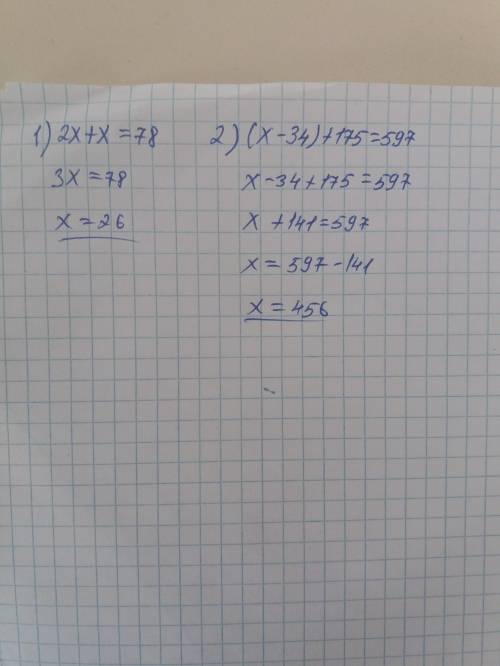 1) 2x+x=78
3x=78
x=26
2) (x-34)+175=597
x-34+175=597
x+141=597
x=597-141
x=456